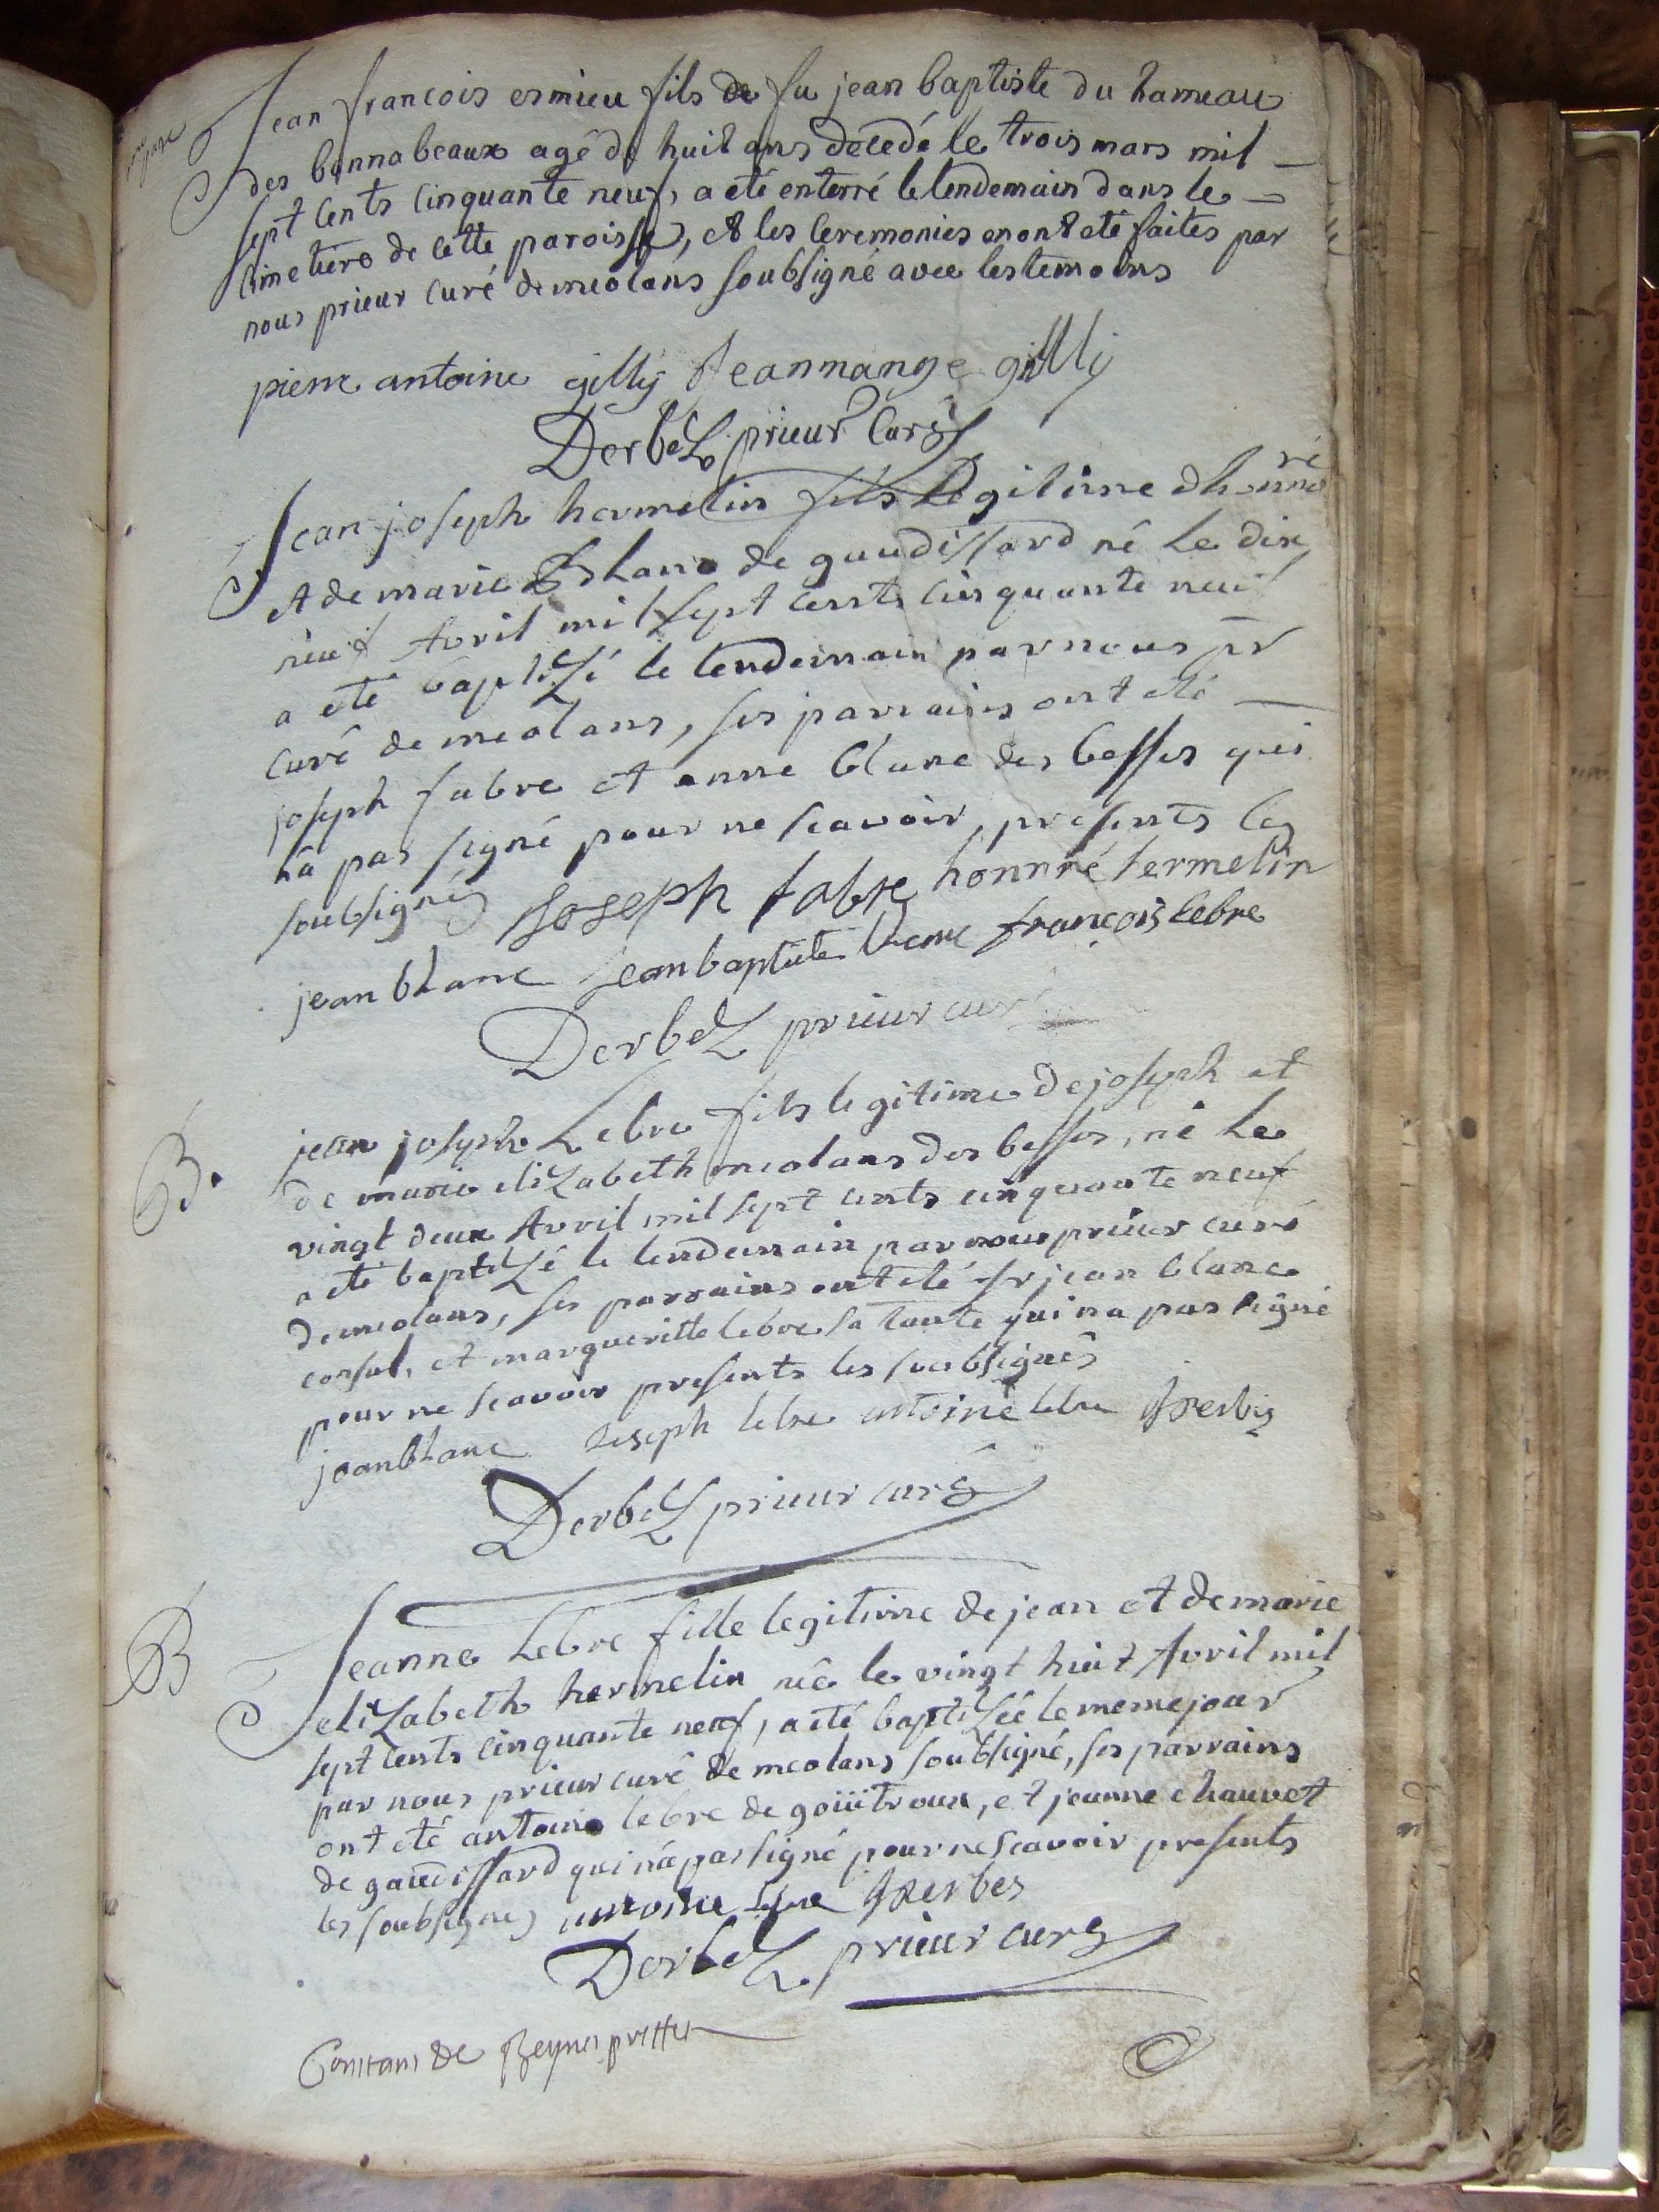 Jean francois esmieu fils de fu jean baptiste du hameau
des bonnabeaux agé de huit ans décedé le trois mars mil
sept cents cinquante neuf, a eté enterré le lendemain dans le
cimetiere de cette paroisse, et les ceremonies en ont eté faites par
nous prieur curé de meolans soubsigné avec les temoins
pierre antoine gilly Jeanmange gilly
Derbez prieur curé
Jean joseph hermelin fils legitime dhonnoré
et de marie Blanc de gaudissard né le dix
neuf Avril mil sept cents cinquante neuf
a eté baptizé le lendemain par nous pr
curé de meolans, ses parrains ont eté
joseph fabre et anne blanc des besses qui
nâ pas signé pour ne scavoir, presents les
soubsignés Joseph fabre honnré hermelin
jean blanc Jean baptiste françois lebre
Derbez prieur curé
B.
jean joseph Lebre fils legitime de joseph et
de marie elizabeth meolans des besses, né le
vingt deux Avril mil sept cents cinquante neuf
a eté baptizé le lendemain par nous prieur curé
de meolans, ses parrains ont eté sr jean blanc
consul, et margueritte lebre sa tante qui na pas signé
pour ne scavoir presents les soubsignés
jean blanc Joseph lebre antoine lebre
Derbez prieur curé
B
Jeanne Lebre fille legitime de jean et de marie
elizabeth hermelin née le vingt huit Avril mil
sept cents cinquante neuf, a eté baptizée le meme jour
par nous prieur curé de meolans soubsigné, ses parrains
ont eté antoine lebre de goüitroux, et jeanne chauvet
de gaudissard qui nâ pas signé pour ne scavoir presents
les soubsignes antoine lebre
Derbez prieur curé